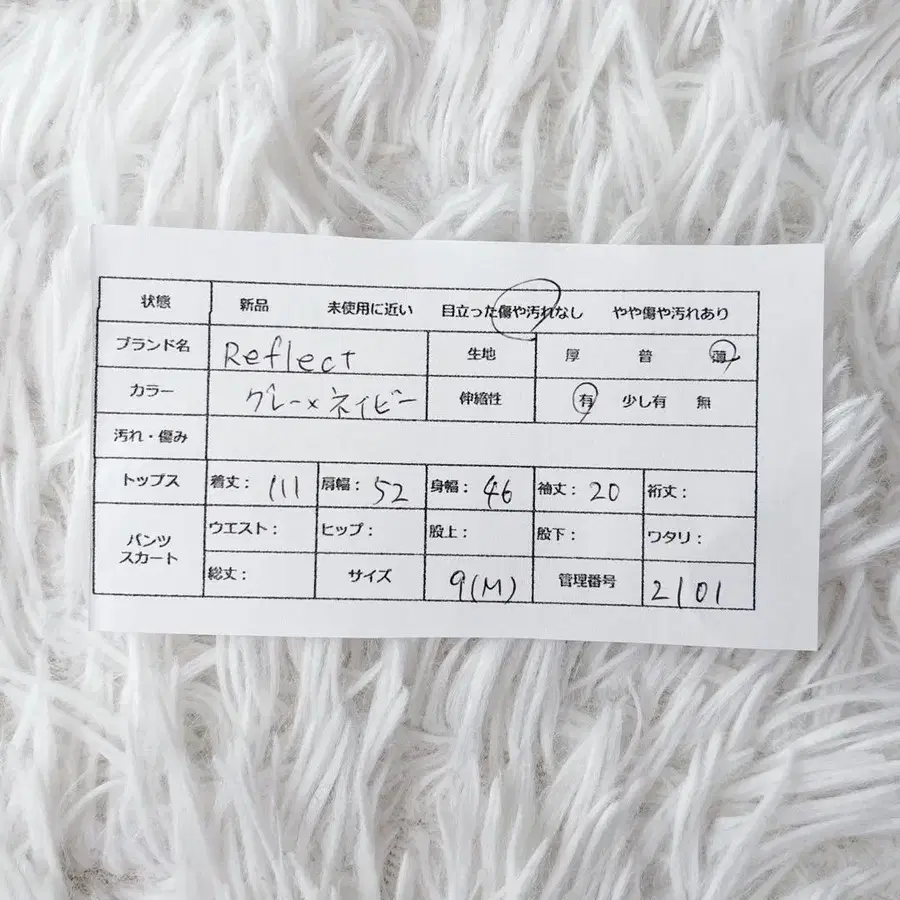 状態 新品 未使用に近い 目立った傷や汚れなし やや傷や汚れあり
ブランド名 Reflect 生地 厚 普 薄
カラー グレー×ネイビー 伸縮性 有 少し有 無
汚れ・傷み
トップス 着丈： 111 肩幅： 52 身幅： 46 袖丈： 20 裄丈：
パンツ スカート ウエスト： ヒップ： 股上： 股下： ワタリ：
総丈： サイズ 9(M) 管理番号 2101